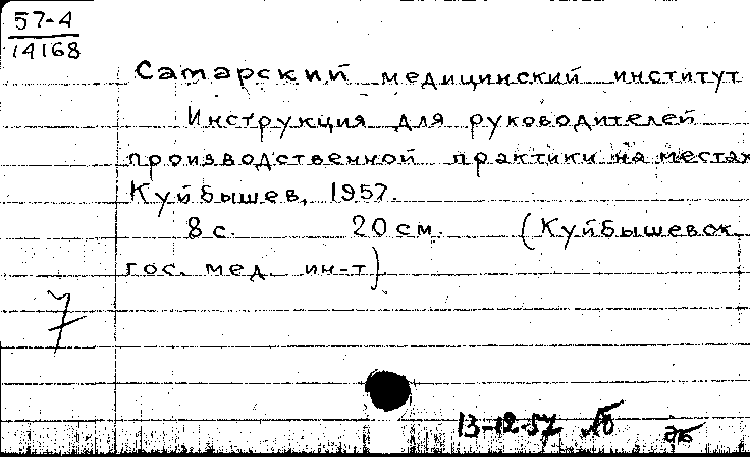 57-4
14168
Самарский медицинский институт
Инструкция для руководителей
производственной практики на местах
Куйбышев, 1957.
8 с. 20 см. (Куйбышевск.
гос. мед. ин-т)
7
13-12-57